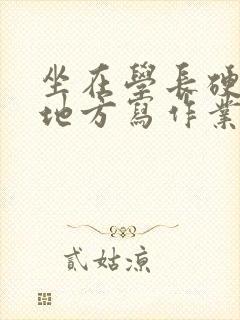 坐在學長硬
地方寫作業
貳姑涼